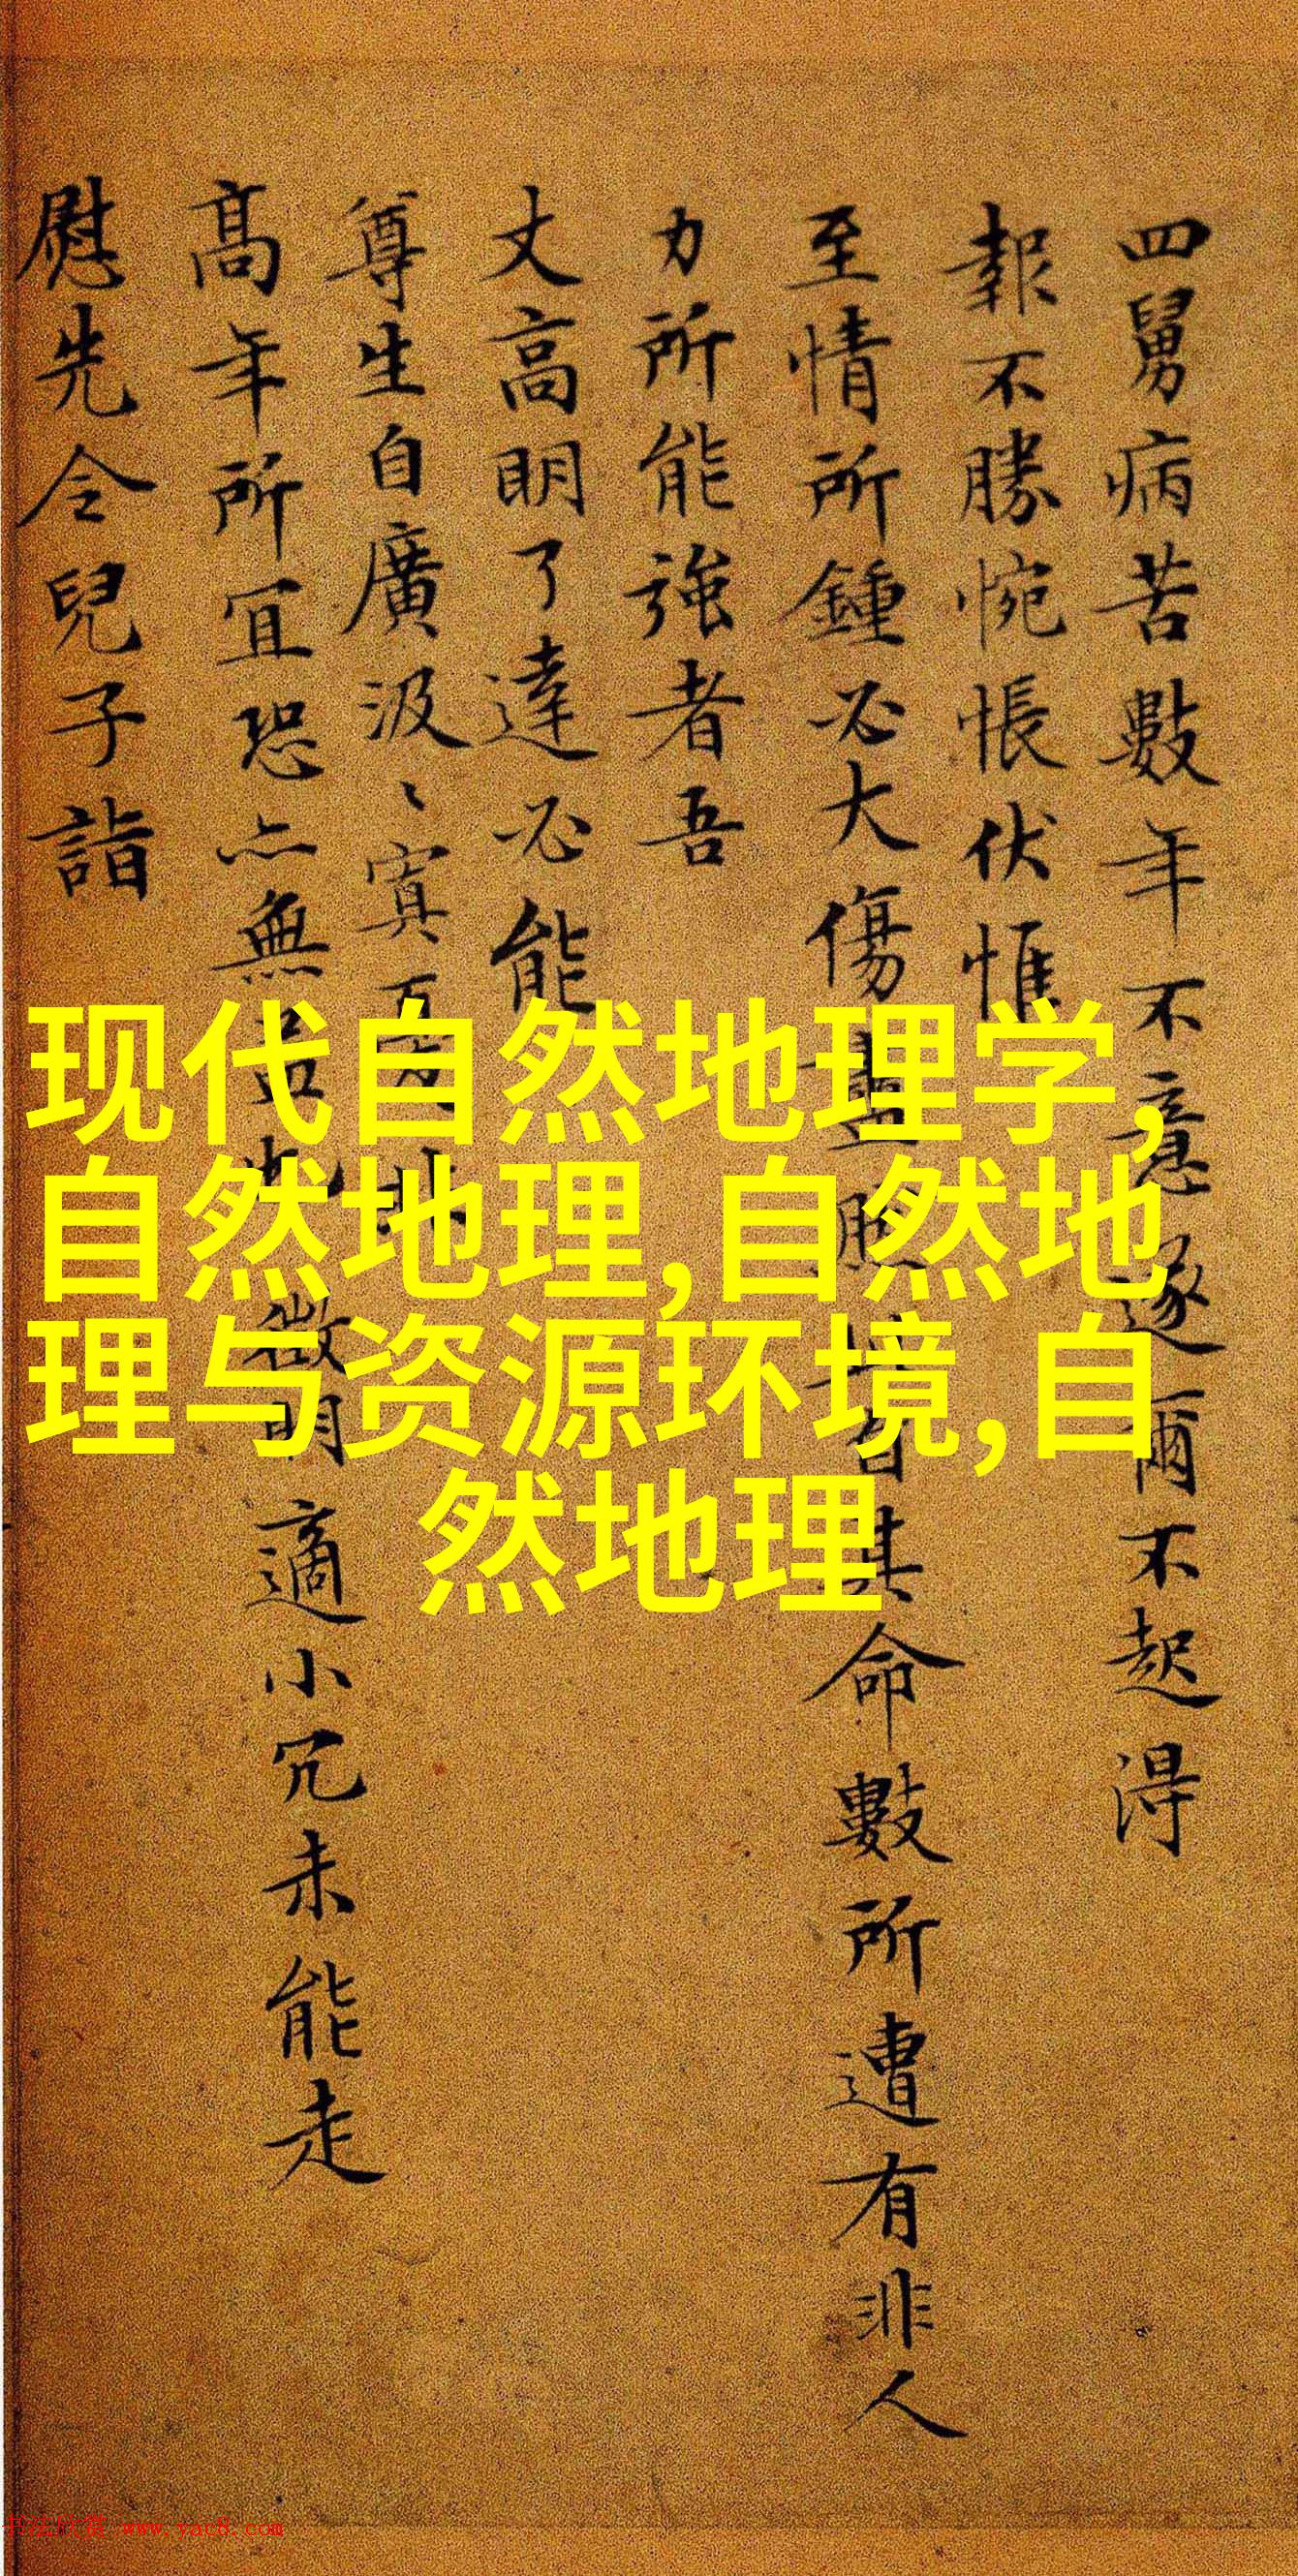 四舅病苦數年不意遂爾不起得
報不勝惋悵伏惟
至情所鍾必大傷其命數所遭有非人
力所能強者吾
丈高明了達必能
尊生自廣汲〻寘
高年所宜恐亦無適小冗未能走
慰先令兒子詣
现代自然地理学,
自然地理,自然地
理与资源环境,自
然地理
书法欣赏 www.yac8.com